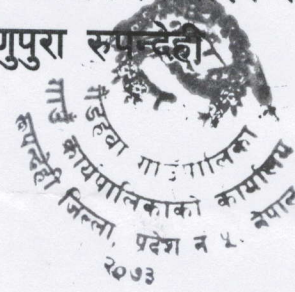 णुपुरा रुपन्देही
गैडहवा गाउँपालिका
गाउँ कार्यपालिकाको कार्यालय
रुपन्देही जिल्ला, प्रदेश नं ५, नेपाल
२०७३